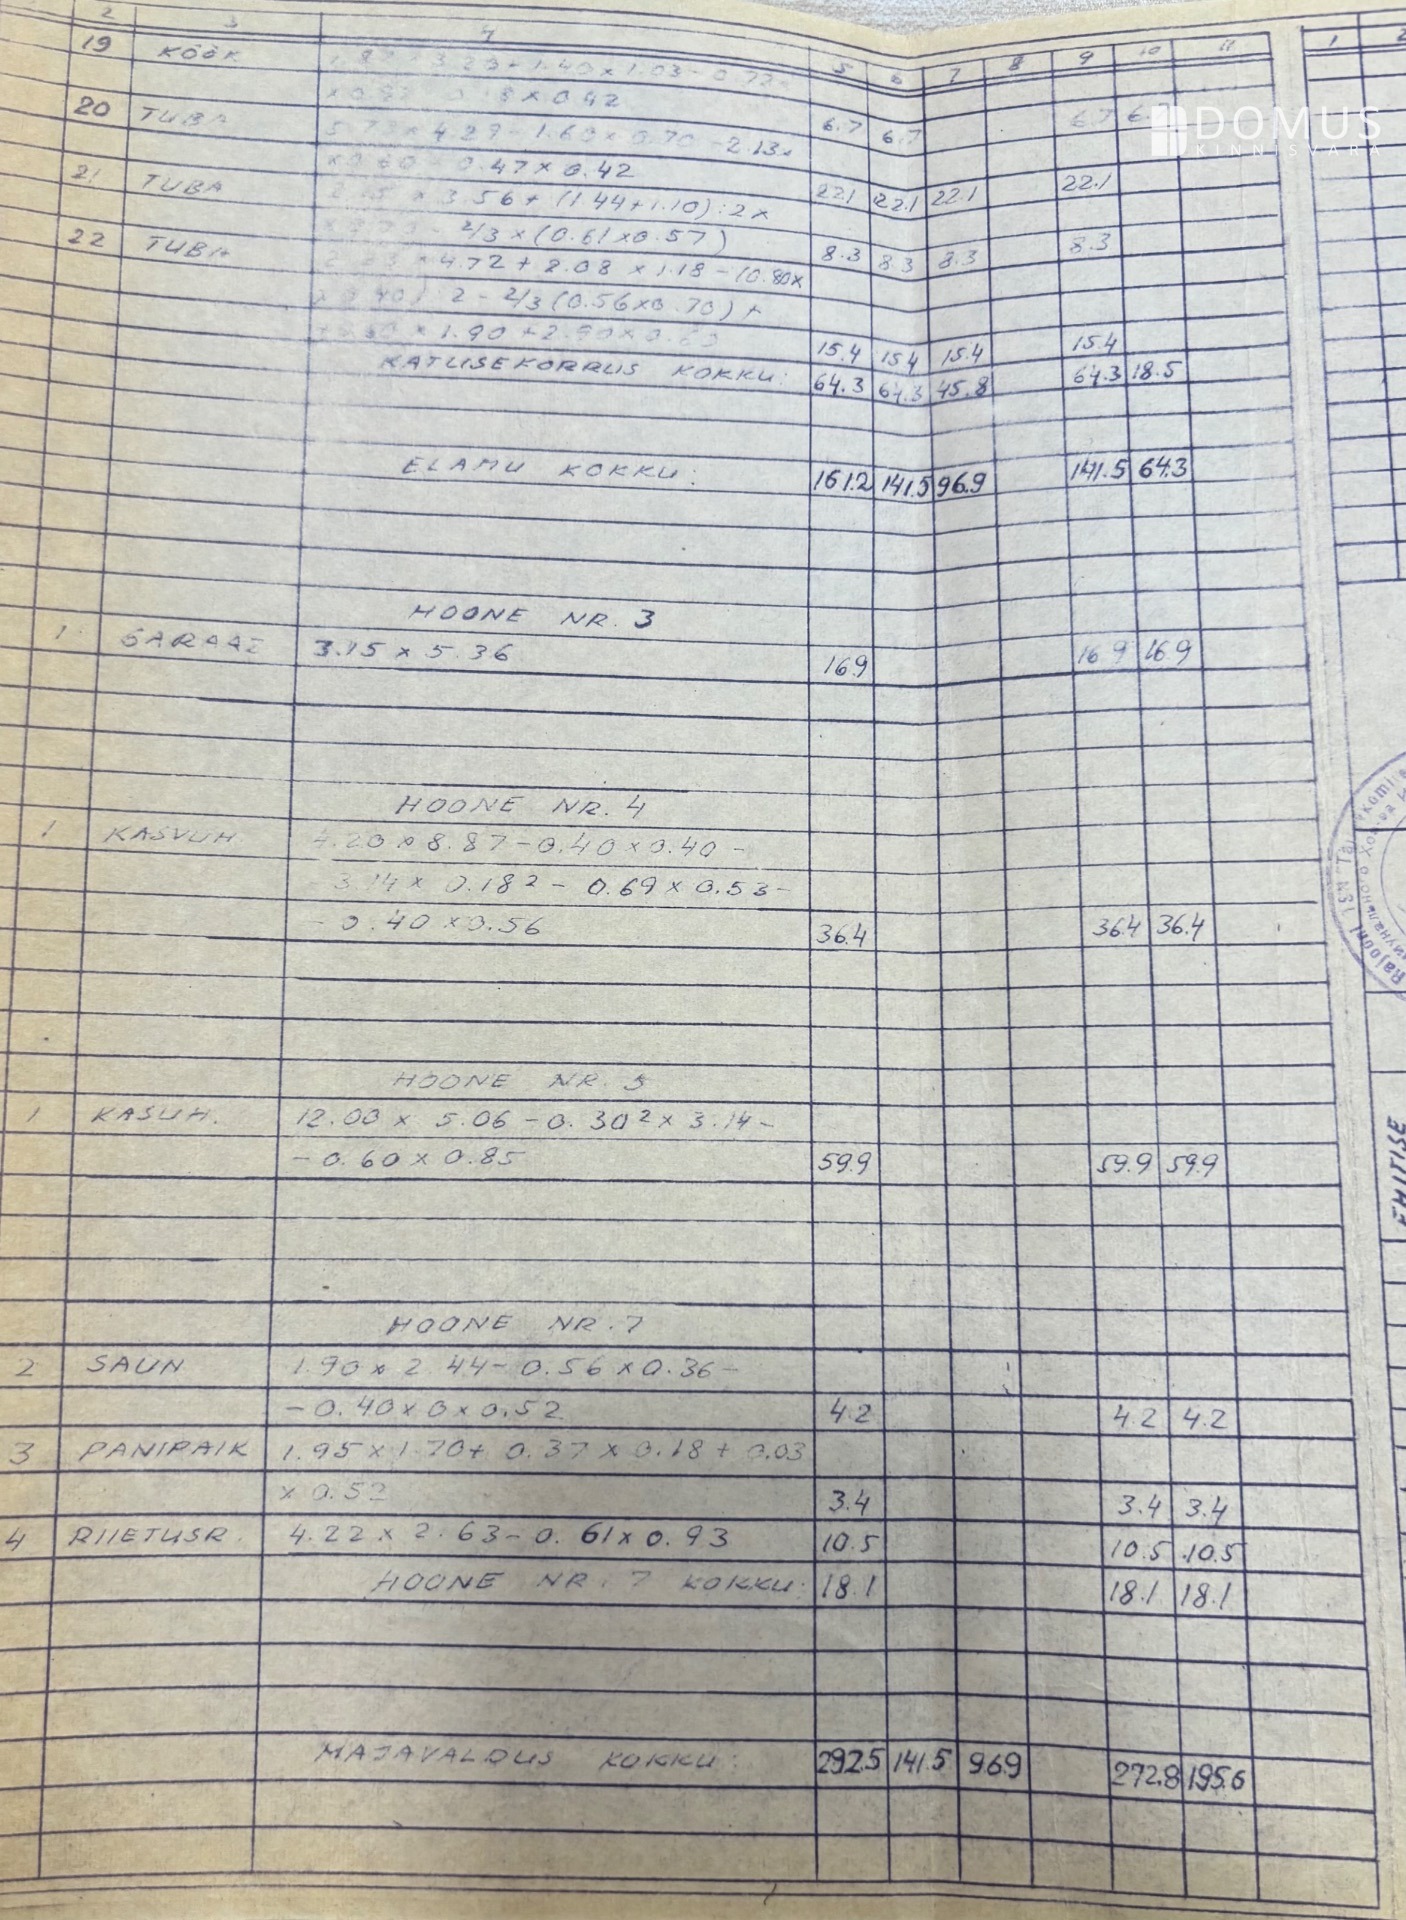 2 3 4 5 6 7 8 9 10 11
19 KÖÖK
× 0.42 6.7 6.7 6.7
20 TUBA × 4.29 - 1.60 × 0.70 - 2.13×
0.47 × 0.42 22.1 22.1 22.1 22.1
21 TUBA × 3.56 + (1.44+1.10):2×
2/3 × (0.61 × 0.57) 8.3 8.3 8.3 8.3
22 TUBA × 4.72 + 2.08 × 1.18 - (0.80×
:2 - 2/3 (0.56×0.70) +
× 1.90 + 15.4 15.4 15.4 15.4
KATUSEKORRUS KOKKU: 64.3 64.3 45.8 64.3 18.5
ELAMU KOKKU: 161.2 141.5 96.9 141.5 64.3
HOONE NR. 3
1 GARAAZ 3.15 × 5.36 16.9 16.9 16.9
HOONE NR. 4
1 KASVUH. 4.20 × 8.87 - 0.40 × 0.40 -
- 3.14 × 0.18² - 0.69 × 0.53 -
- 0.40 × 0.56 36.4 36.4 36.4
HOONE NR. 5
1 KASUH. 12.00 × 5.06 - 0.30² × 3.14 -
- 0.60 × 0.85 59.9 59.9 59.9
HOONE NR. 7
2 SAUN 1.90 × 2.44 - 0.56 × 0.36 -
- 0.40 × 0 × 0.52 4.2 4.2 4.2
3 PANIPAIK 1.95 × 1.70 + 0.37 × 0.18 + 0.03
× 0.52 3.4 3.4 3.4
4 RIIETUSR. 4.22 × 2.63 - 0.61 × 0.93 10.5 10.5 10.5
HOONE NR. 7 KOKKU: 18.1 18.1 18.1
MAJAVALDUS KOKKU: 292.5 141.5 96.9 272.8 195.6
DOMUS
KINNISVARA
1 2
EHITISE